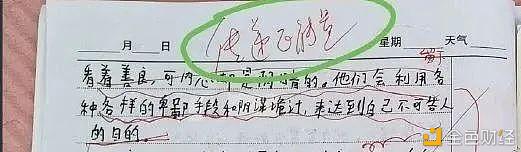 传递正能量
月 日 星期 天气
看着善良,可内心却是阴暗的。他们会利用各
种各样的卑鄙手段和阴谋诡计,来达到自己不可告人
的目的。
金色财经